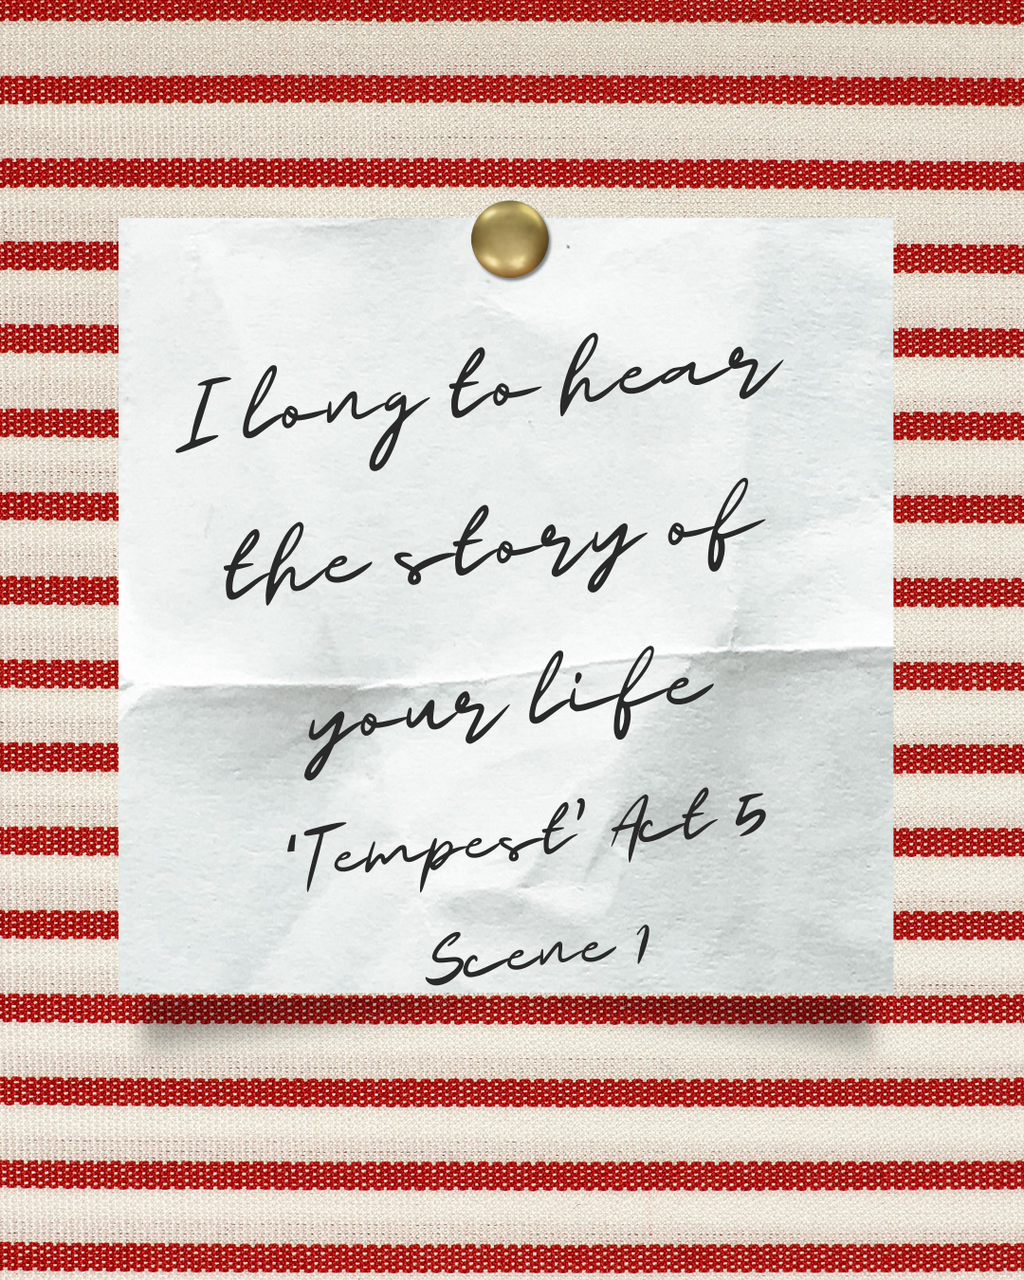 I long to hear
the story of
your life
'Tempest' Act 5
Scene 1